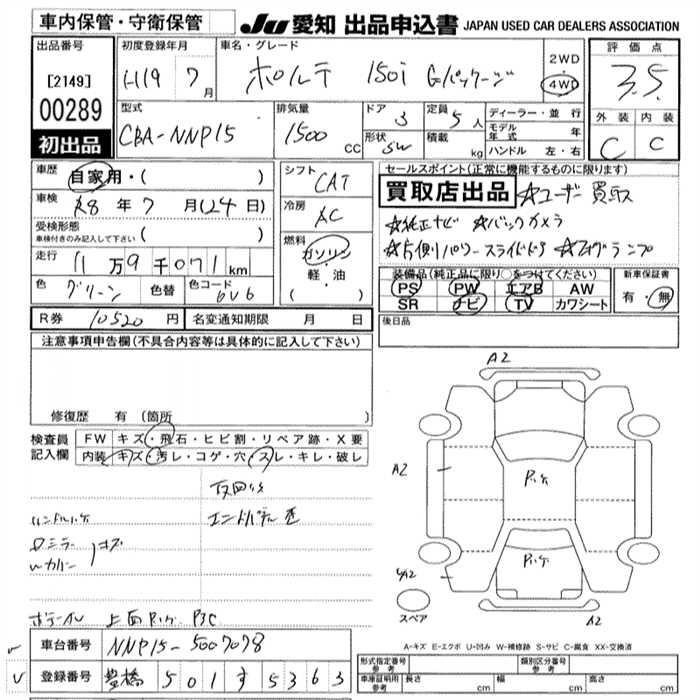 車内保管・守衛保管
JU 愛知 出品申込書 JAPAN USED CAR DEALERS ASSOCIATION
出品番号
[2149]
00289
初出品
初度登録年月
H19 7月
車名・グレード
ポルテ 150i Gパッケージ
2WD
4WD
評価点
3.5
外装 内装
C C
型式
CBA-NNP15
排気量
1500 CC
ドア 3
形状 SW
定員 5人
積載 kg
ディーラー・並行
モデル年式 年
ハンドル 左・右
車歴
自家用・( )
車検
R8年7月(24日)
受検形態
車検付きのみ記入して下さい ( )
走行
11万9千071km
色
グリーン
色替
色コード
6V6
シフト
CAT
冷房
AC
燃料
ガソリン
軽・油
( )
セールスポイント(正常に機能するものに限ります)
買取店出品 ☆ユーザー買取
☆純正ナビ ☆バックカメラ
☆片側パワースライドドア ☆フォグランプ
装備品(純正品に限り○をつけてください)
PS PW エアB AW
SR ナビ TV カワシート
新車保証書
有・無
後日品
R券 10520円
名変通知期限 月 日
注意事項申告欄(不具合内容等は具体的に記入して下さい)
修復歴 有(箇所 )
検査員記入欄
FW キズ・飛石・ヒビ割・リペア跡・X要
内装 キズ・汚レ・コゲ・穴・スレ・キレ・破レ
ハンドルハゲ
上面
P3C
車台番号 NNP15-5007078
登録番号 豊橋 501 す 5363
A2
A2
A2
スペア
A-キズ E-エクボ U-凹み W-補修跡 S-サビ C-腐食 XX-交換済
形式指定番号 参考
類別区分番号 参考
車庫証明用 参考 長さ cm 幅 cm 高さ cm